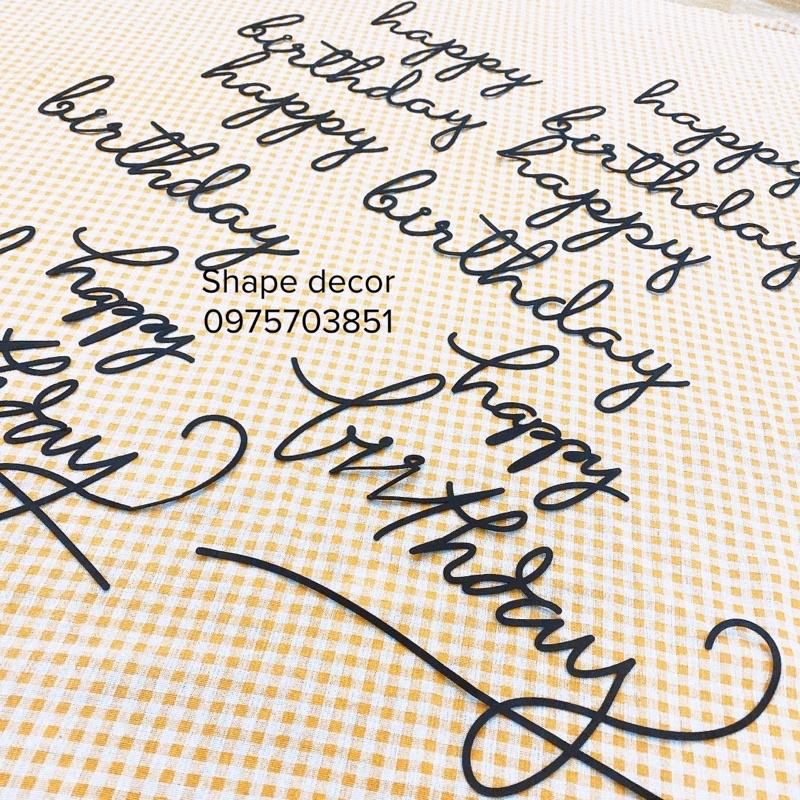 happy
birthday
happy
birthday
happy
birthday
happy
birthday
happy
thday
Shape decor
0975703851
happy
birthday